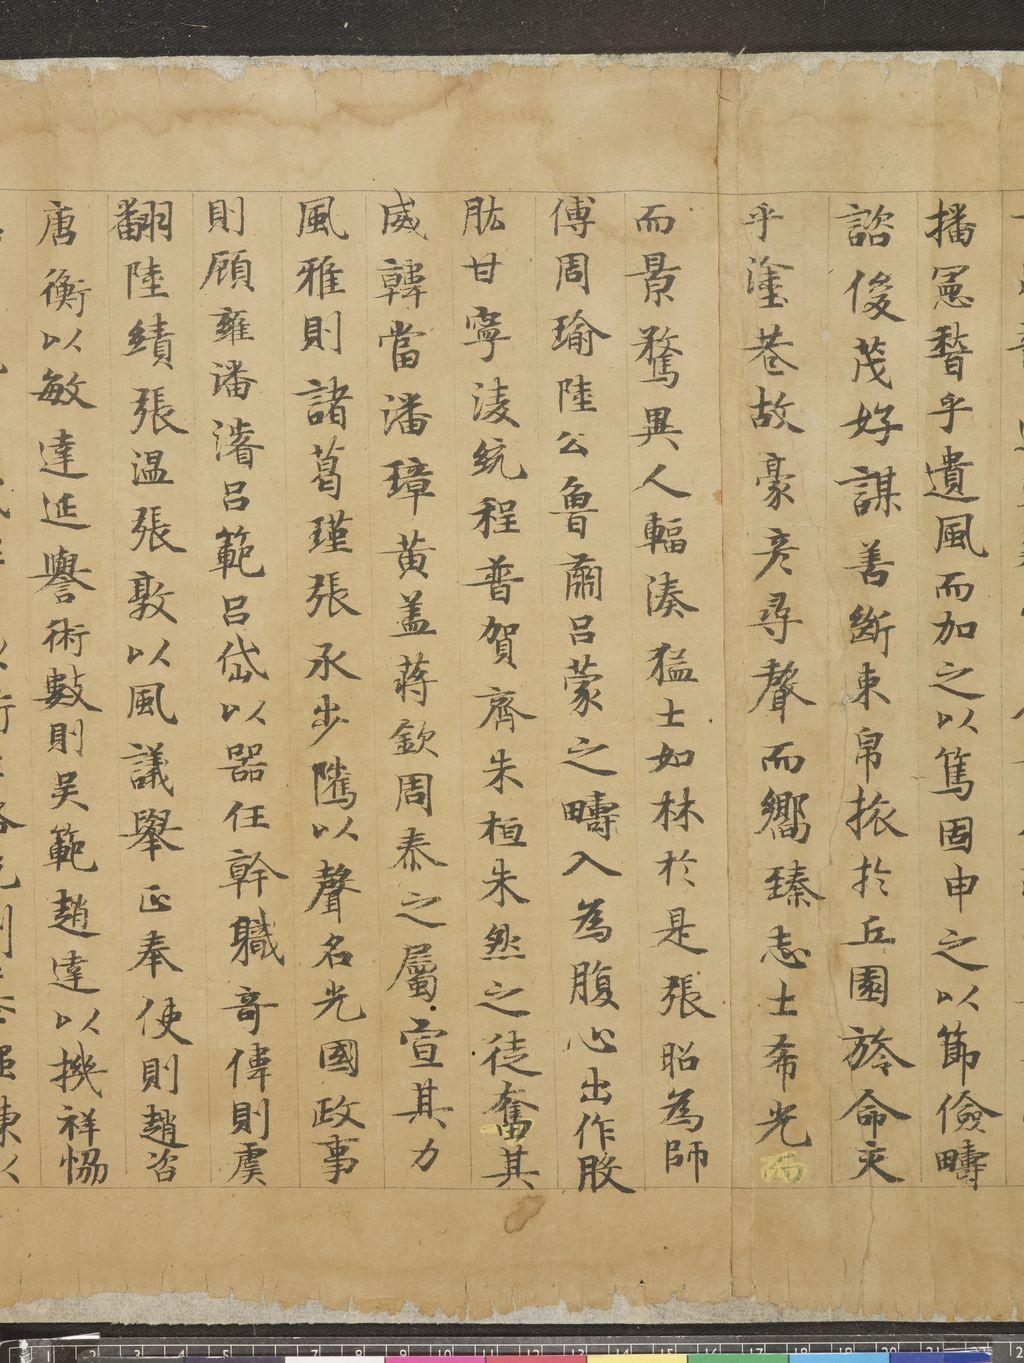 播憲稽乎遺風而加之以篤固申之以節儉疇
諮俊茂好謀善斷束帛旅於丘園旌命交
乎塗巷故豪彦尋聲而嚮臻志士希光而
而景騖異人輻湊猛士如林於是張昭為師
傅周瑜陸公魯肅呂蒙之疇入為腹心出作股
肱甘寧淩統程普賀齊朱桓朱然之徒奮其
威韓當潘璋黄盖蒋欽周泰之屬宣其力
風雅則諸葛瑾張承步隲以聲名光國政事
則顧雍潘濬呂範呂岱以器任幹職奇偉則虞
翻陸績張温張敦以風議舉正奉使則趙咨
唐衡以敏達延譽術數則吴範趙達以機祥惕